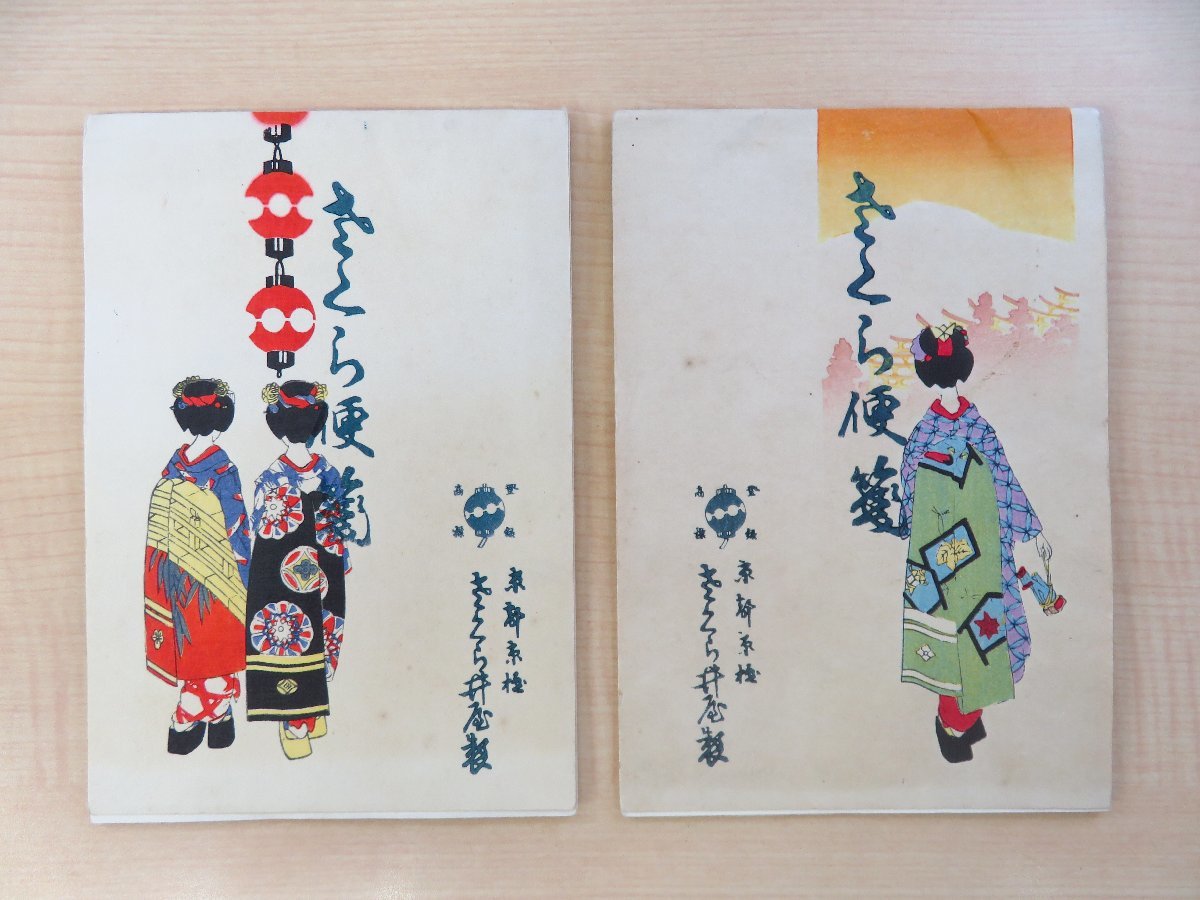 さくら便箋
登録
商標
京都京極
さくら井屋製
さくら便箋
登録
商標
京都京極
さくら井屋製